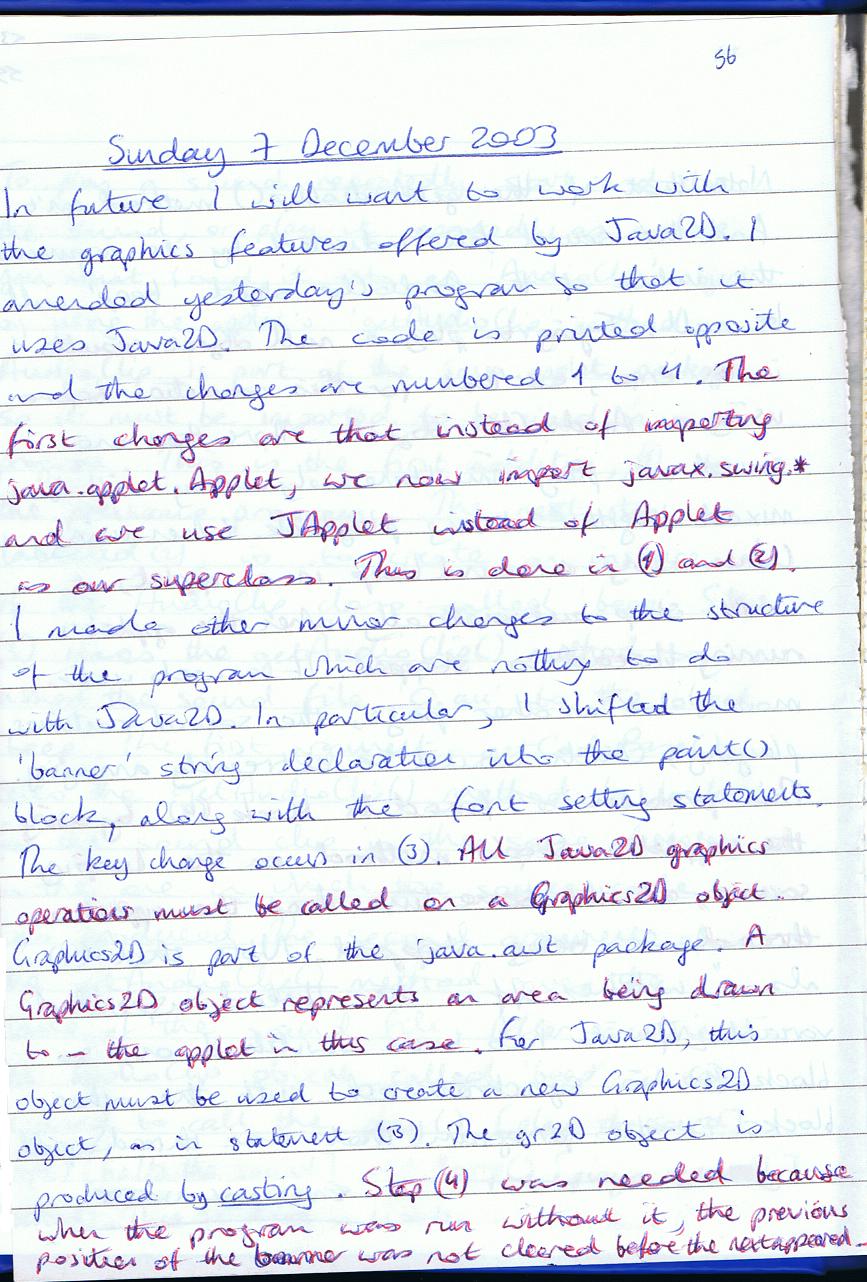 56
Sunday 7 December 2003
In future I will want to work with
the graphics features offered by Java2D. I
amended yesterday's program so that it
uses Java2D. The code is printed opposite
and the changes are numbered 1 to 4. The
first changes are that instead of importing
java.applet.Applet, we now import javax.swing.*
and we use JApplet instead of Applet
as our superclass. This is done in (1) and (2).
I made other minor changes to the structure
of the program which are nothing to do
with Java2D. In particular, I shifted the
'banner' string declaration into the paint()
block, along with the font setting statements.
The key change occurs in (3). All Java2D graphics
operations must be called on a Graphics2D object.
Graphics2D is part of the java.awt package. A
Graphics2D object represents an area being drawn
to - the applet in this case. For Java2D, this
object must be used to create a new Graphics2D
object, as in statement (3). The gr2D object is
produced by casting. Step (4) was needed because
when the program was run without it, the previous
position of the banner was not cleared before the next appeared.